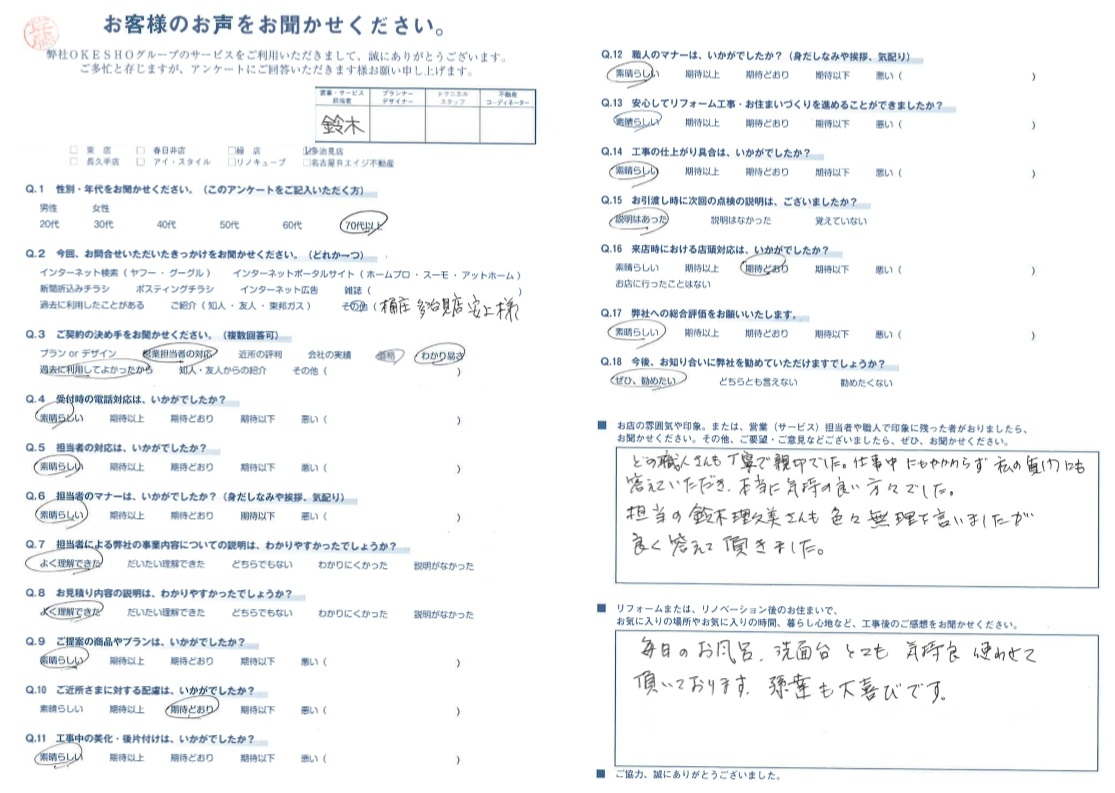 お客様のお声をお聞かせください。
弊社OKESHOグループのサービスをご利用いただきまして、誠にありがとうございます。
ご多忙と存じますが、アンケートにご回答いただきます様お願い申し上げます。
営業・サービス担当者 プランナーデザイナー テクニカルスタッフ 不動産コーディネーター
鈴木
□ 東 店 □ 春日井店 □緑 店 ☑多治見店
□ 長久手店 □ アイ・スタイル □リノキューブ □名古屋エイジ不動産
Q.1 性別・年代をお聞かせください。（このアンケートをご記入いただく方）
男性 女性
20代 30代 40代 50代 60代 70代以上
Q.2 今回、お問合せいただいたきっかけをお聞かせください。（どれか一つ）
インターネット検索（ ヤフー ・ グーグル ） インターネットポータルサイト（ ホームプロ ・ スーモ ・ アットホーム ）
新聞折込みチラシ ポスティングチラシ インターネット広告 雑誌（ ）
過去に利用したことがある ご紹介（ 知人 ・ 友人 ・ 東邦ガス ） その他（桶庄 多治見店 安上様
Q.3 ご契約の決め手をお聞かせください。（複数回答可）
プラン or デザイン 営業担当者の対応 近所の評判 会社の実績 価格 わかり易さ
過去に利用してよかったから 知人・友人からの紹介 その他（ ）
Q.4 受付時の電話対応は、いかがでしたか？
素晴らしい 期待以上 期待どおり 期待以下 悪い（ ）
Q.5 担当者の対応は、いかがでしたか？
素晴らしい 期待以上 期待どおり 期待以下 悪い（ ）
Q.6 担当者のマナーは、いかがでしたか？（身だしなみや挨拶、気配り）
素晴らしい 期待以上 期待どおり 期待以下 悪い（ ）
Q.7 担当者による弊社の事業内容についての説明は、わかりやすかったでしょうか？
よく理解できた だいたい理解できた どちらでもない わかりにくかった 説明がなかった
Q.8 お見積り内容の説明は、わかりやすかったでしょうか？
よく理解できた だいたい理解できた どちらでもない わかりにくかった 説明がなかった
Q.9 ご提案の商品やプランは、いかがでしたか？
素晴らしい 期待以上 期待どおり 期待以下 悪い（ ）
Q.10 ご近所さまに対する配慮は、いかがでしたか？
素晴らしい 期待以上 期待どおり 期待以下 悪い（ ）
Q.11 工事中の美化・後片付けは、いかがでしたか？
素晴らしい 期待以上 期待どおり 期待以下 悪い（ ）
Q.12 職人のマナーは、いかがでしたか？（身だしなみや挨拶、気配り）
素晴らしい 期待以上 期待どおり 期待以下 悪い（ ）
Q.13 安心してリフォーム工事・お住まいづくりを進めることができましたか？
素晴らしい 期待以上 期待どおり 期待以下 悪い（
Q.14 工事の仕上がり具合は、いかがでしたか？
素晴らしい 期待以上 期待どおり 期待以下 悪い（ ）
Q.15 お引渡し時に次回の点検の説明は、ございましたか？
説明はあった 説明はなかった 覚えていない
Q.16 来店時における店頭対応は、いかがでしたか？
素晴らしい 期待以上 期待どおり 期待以下 悪い（ ）
お店に行ったことはない
Q.17 弊社への総合評価をお願いいたします。
素晴らしい 期待以上 期待どおり 期待以下 悪い（ ）
Q.18 今後、お知り合いに弊社を勧めていただけますでしょうか？
ぜひ、勧めたい どちらとも言えない 勧めたくない
■ お店の雰囲気や印象。または、営業（サービス）担当者や職人で印象に残った者がおりましたら、
お聞かせください。その他、ご要望・ご意見などございましたら、ぜひ、お聞かせください。
どの職人さんも丁寧で親切でした。仕事中にもかかわらず 私の質問にも
答えていただき、本当に気持の良い方々でした。
担当の鈴木理久美さんも色々無理を言いましたが
良く答えて頂きました。
■ リフォームまたは、リノベーション後のお住まいで、
お気に入りの場所やお気に入りの時間、暮らし心地など、工事後のご感想をお聞かせください。
毎日のお風呂、洗面台とても 気持良く使わせて
頂いております。孫達も大喜びです。
■ ご協力、誠にありがとうございました。